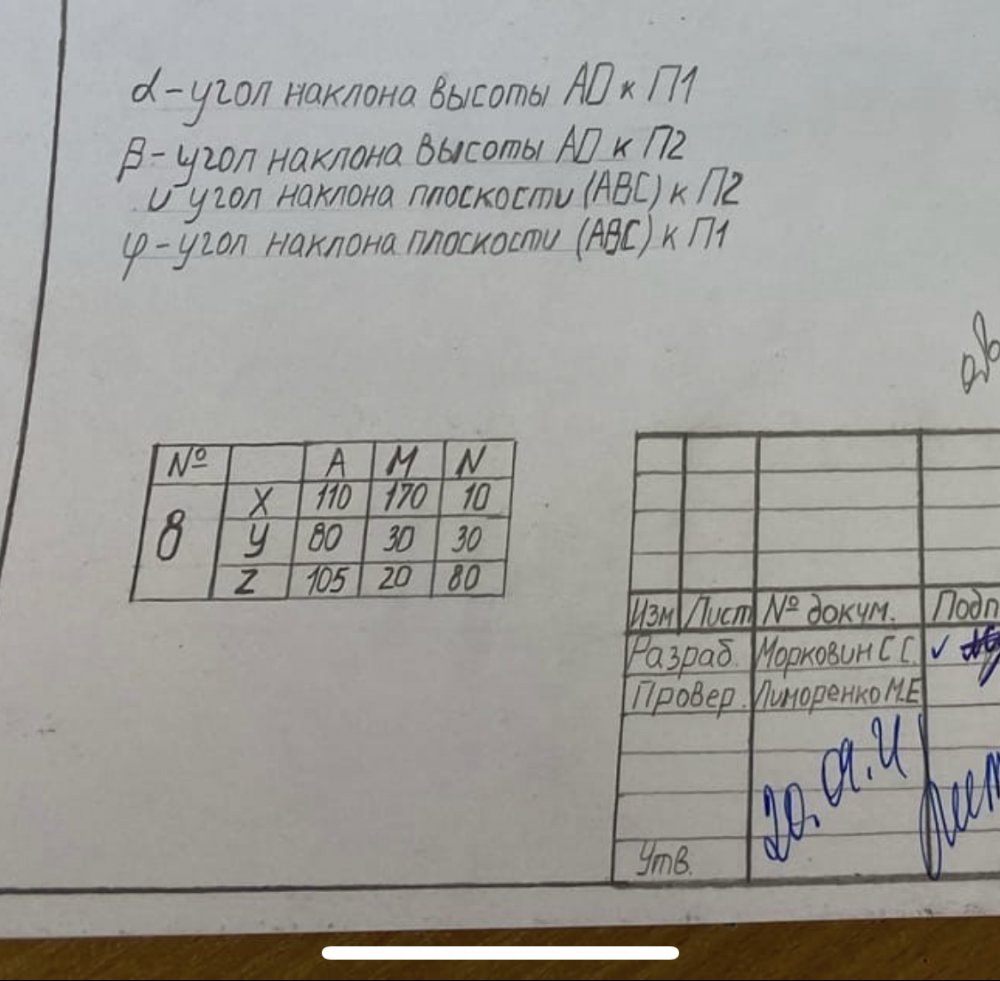 α-угол наклона высоты AD к П1
β-угол наклона высоты AD к П2
υ угол наклона плоскости (ABC) к П2
φ-угол наклона плоскости (ABC) к П1
№ A M N
8
X 110 170 10
y 80 30 30
Z 105 20 80
Изм Лист № докум. Подп
Разраб. Морковин С С.
Провер. Лиморенко М.Е
20.09.
Утв.